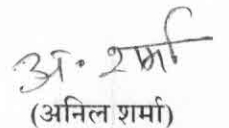 अ. शर्मा
(अनिल शर्मा)